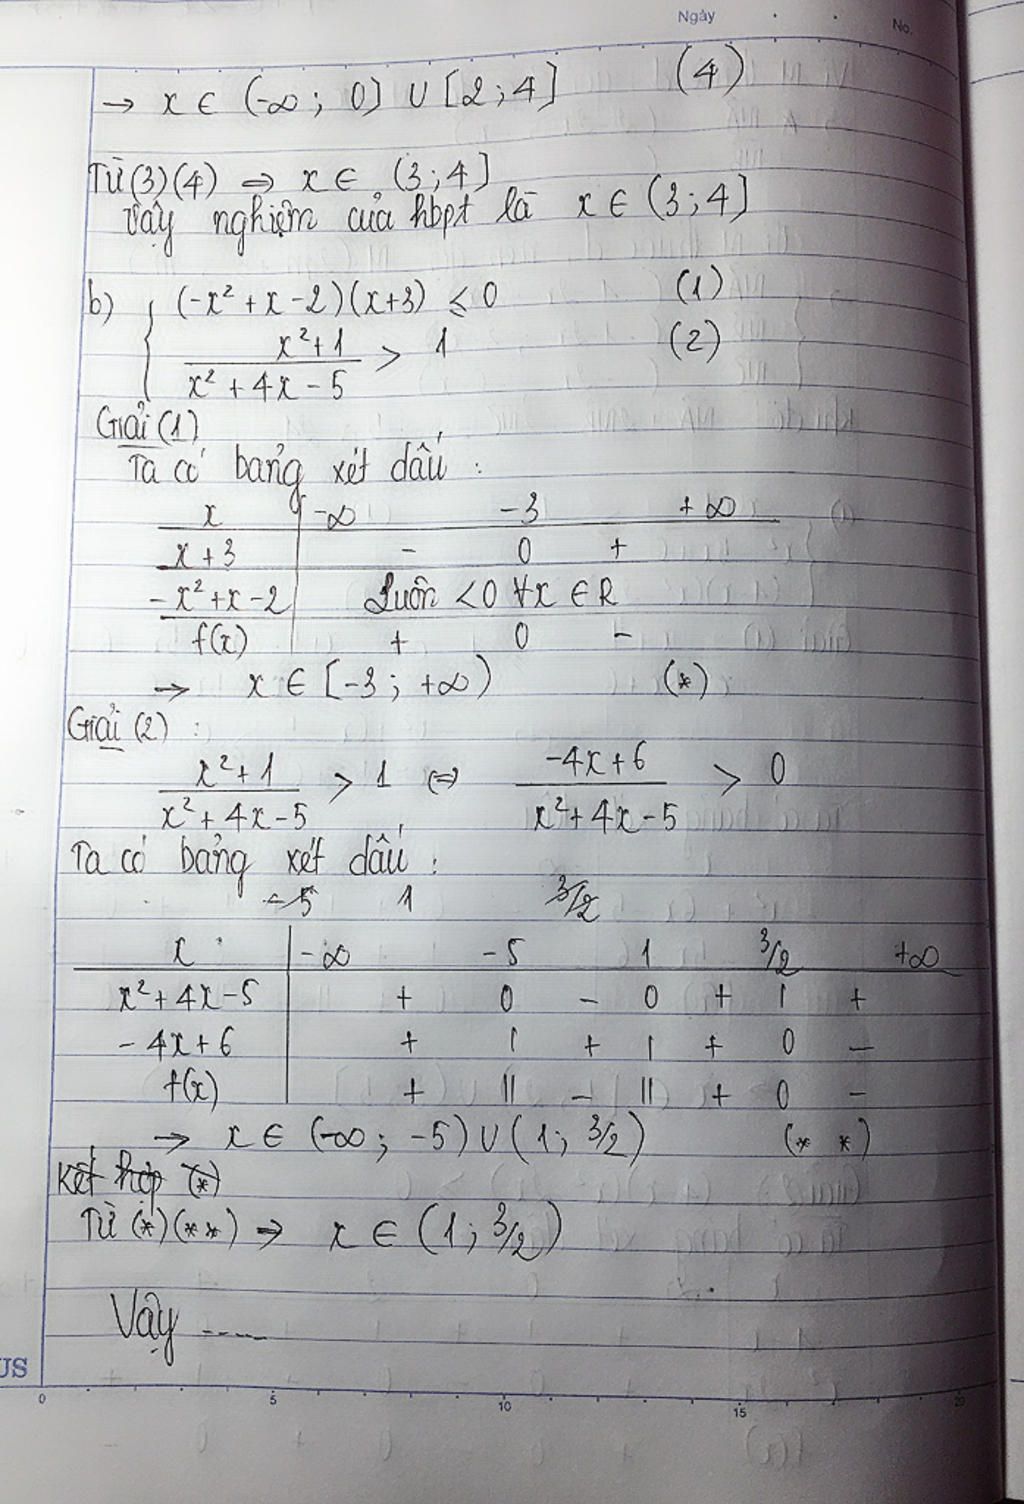 Ngày
No.
→ x ∈ (-∞; 0] ∪ [2; 4] (4)
Từ (3)(4) ⇒ x ∈ (3; 4]
Vậy nghiệm của hbpt là x ∈ (3; 4]
b) { (-x² + x - 2)(x+3) ≤ 0 (1)
(x²+1)/(x² + 4x - 5) > 1 (2)
Giải (1)
Ta có bảng xét dấu :
x | -∞ -3 +∞
x + 3 | - 0 +
-x² + x - 2 | Luôn < 0 ∀x ∈ R
f(x) | + 0 -
→ x ∈ [-3; +∞) (*)
Giải (2) :
(x² + 1)/(x² + 4x - 5) > 1 ⇔ (-4x + 6)/(x² + 4x - 5) > 0
Ta có bảng xét dấu :
-5 1 3/2
x | -∞ -5 1 3/2 +∞
x² + 4x - 5 | + 0 - 0 + | +
- 4x + 6 | + | + | + 0 -
f(x) | + || - || + 0 -
→ x ∈ (-∞; -5) ∪ (1; 3/2) (* *)
Kết hợp (*)
Từ (*)(**) ⇒ x ∈ (1; 3/2)
Vậy .....
US
0 5 10 15 20